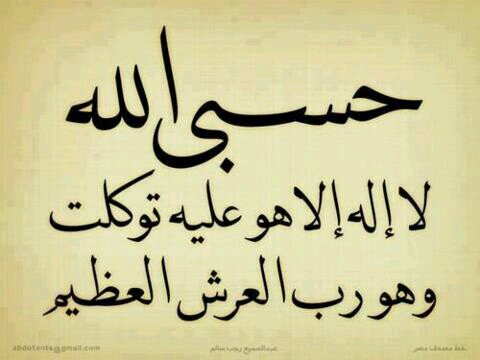 حسبي الله
لا إله إلا هو عليه توكلت
وهو رب العرش العظيم
خط مصحف مصر
عبدالسميع رجب سالم
abdofonts@gmail.com